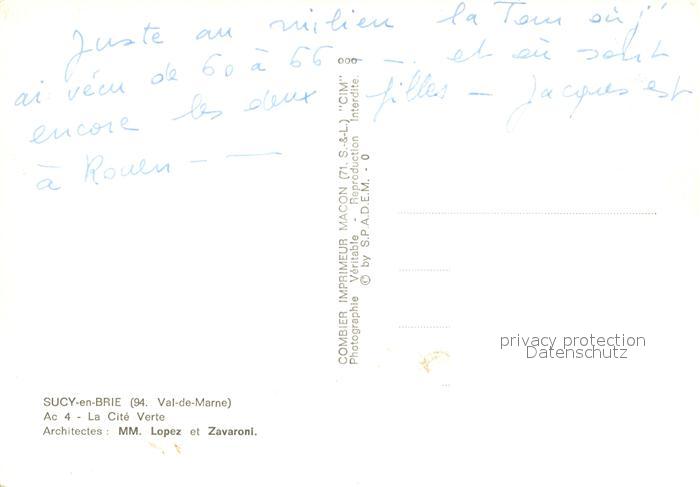 Juste au milieu la Tour où j'
ai vécu de 60 à 66 — . et où sont
encore les deux filles — Jacques est
à Rouen — —
COMBIER IMPRIMEUR MACON (71, S.-&-L.) "CIM"
Photographie Véritable - Reproduction Interdite.
© by S.P.A.D.E.M. - 0
privacy protection
Datenschutz
SUCY-en-BRIE (94. Val-de-Marne)
Ac 4 - La Cité Verte
Architectes : MM. Lopez et Zavaroni.